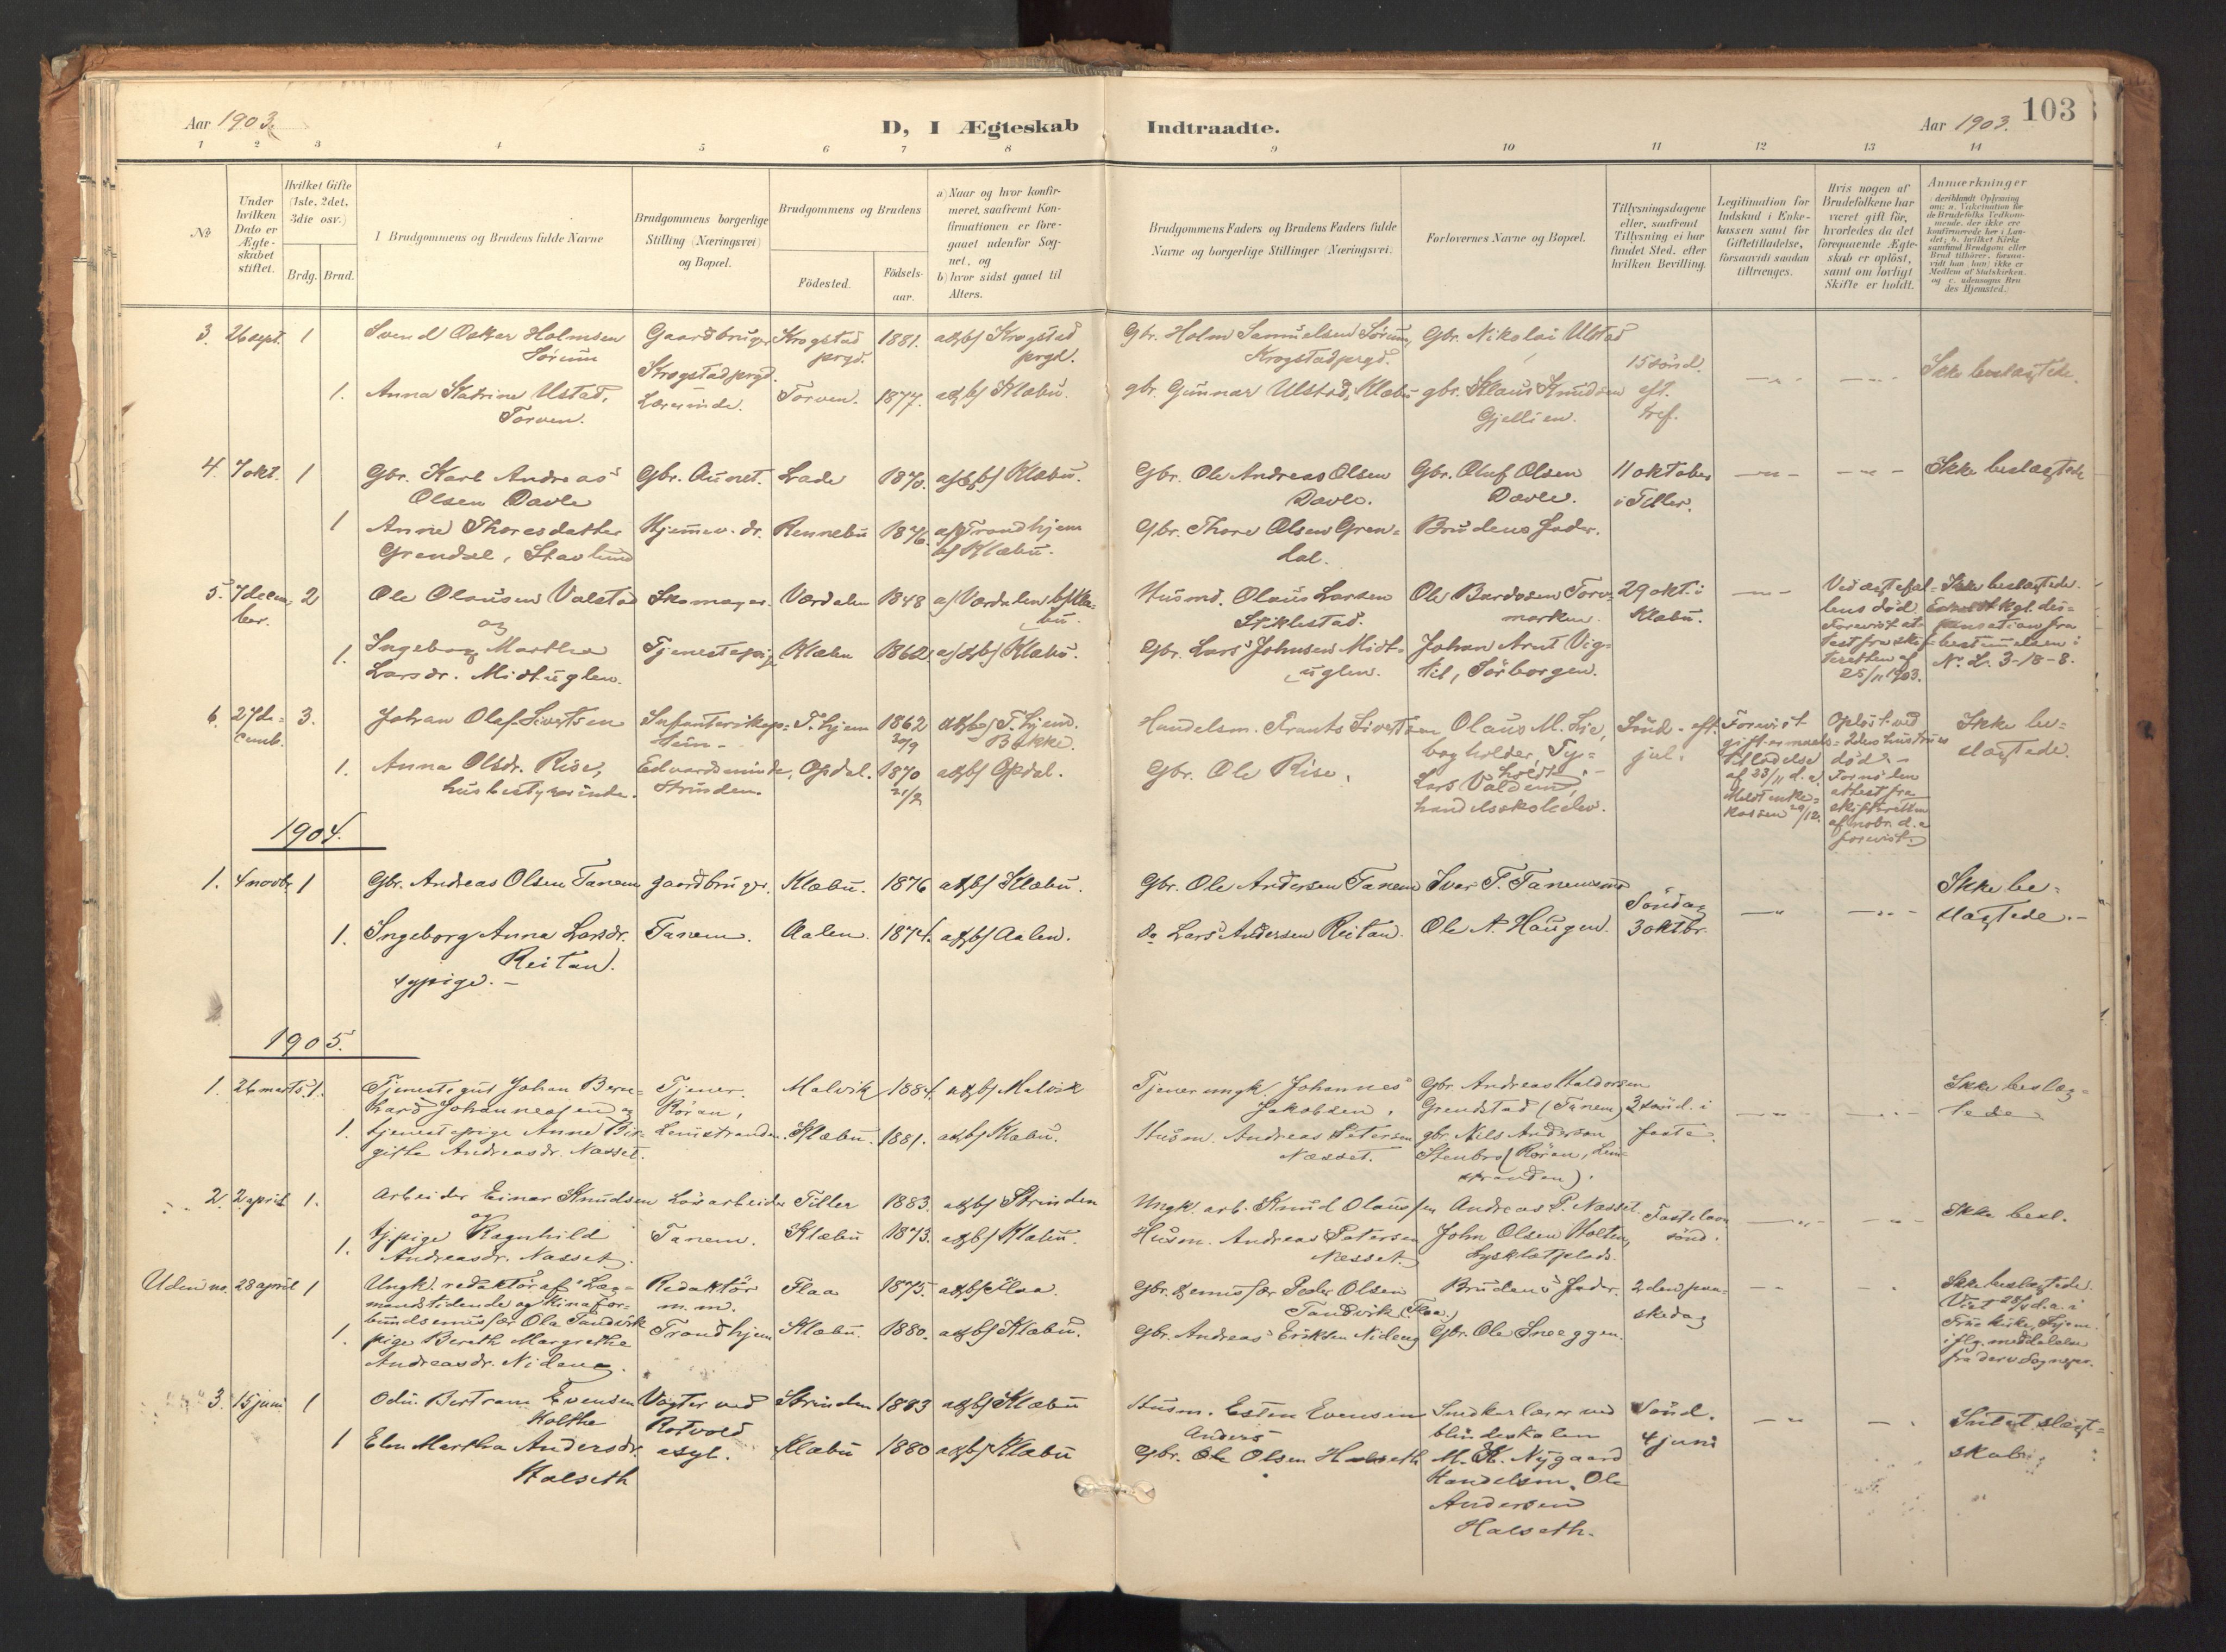 Aar 1903.
D, I Ægteskab
Indtraadte.
Aar 1903.
103
1 2 3 4 5 6 7 8 9 10 11 12 13 14
No
Under hvilken Dato er Ægteskabet stiftet.
Hvilket Gifte (1ste, 2det, 3die osv.)
Brdg. Brud.
I Brudgommens og Brudens fulde Navne
Brudgommens borgerlige Stilling (Næringsvei) og Bopæl.
Brudgommens og Brudens
Födested.
Födselsaar.
a) Naar og hvor konfirmeret, saafremt Konfirmationen er foregaaet udenfor Sognet, og
b) hvor sidst gaaet til Alters.
Brudgommens Faders og Brudens Faders fulde Navne og borgerlige Stillinger (Næringsvei).
Forlovernes Navne og Bopæl.
Tillysningsdagene eller, saafremt Tillysning ei har fundet Sted, efter hvilken Bevilling.
Legitimation for Indskud i Enkekassen samt for Giftetilladelse, forsaavidt saadan tiltrænges.
Hvis nogen af Brudefolkene har været gift før, hvorledes da det foregaaende Ægteskab er oplöst, samt om lovligt Skifte er holdt.
Anmærkninger
3. 26 sept. 1
Svend Oskar Holmsen
Sörum
Gaardbruger
Krogstad prgd.
Krogstad
prgd.
1881.
a & b) Krogstad
prgd.
Gbr. Holm Samuelsen Sörum,
Krogstad prgd.
Gbr. Nikolai Ulstad
15 sönd.
eft.
tref.
Ikke beslægtede.
1.
Anna Katrine Ulstad,
Torven.
Lærerinde.
Torven.
1877.
a & b) Klæbu.
gbr. Gunnar Ulstad, Klæbu
gbr. Klaus Knudsen
Gjellien.
4. 7 okt. 1
Gbr. Karl Andreas
Olsen Davle
Gbr. Aunet.
Lade
1870.
a & b) Klæbu.
Gbr. Ole Andreas Olsen
Davle.
Gbr. Oluf Olsen
Davle.
11 oktober
i Tiller.
Ikke beslægtede
1
Anne Thoresdatter
Grendal, Stavlund
Hjemmev. dr.
Rennebu
1876.
a) Trondhjem
b) Klæbu.
Gbr. Thore Olsen Grendal.
Brudens fader.
5. 7 decem-
ber.
2
Ole Olausen Valstad
og
Skomager.
Værdalen
1848
a) Værdalen b) Klæ-
bu.
Husmd. Olaus Larsen
Stiklestad.
Ole Bardosen Torv-
marken.
29 okt. i
Klæbu.
Ved ægtefæl-
lens död.
Ikke beslægtede.
1.
Ingeborg Martha
Larsdr. Midtuglen.
Tjenestepige
Klæbu
1862.
a & b) Klæbu.
Gbr. Lars Johnsen Midt-
uglen.
Johan Arnt Vig-
til, Sörborgen.
25/11 1903.
N. L. 3-18-8.
6. 27 de-
cemb.
3.
Johan Olaf Sivertsen
T.hjem
1862
30/9
a & b) T.hjem.
Bakke.
Handelsm. Frants Sivertsen
Olaus M. Lie,
bogholder, Ty-
holdt.
Sönd. eft.
jul.
Forevist
af 23/11 d. a.
Meldt enke-
kassen 29/12.
Oplöst ved
2den hustrues
död.
Ikke be-
slægtede.
1.
Anna Olsdr. Rise,
husbestyrerinde.
Edvardsminde,
Strinden.
Opdal.
1870
21/2
a & b) Opdal.
Gbr. Ole Rise.
Lars Valdem,
handelsskoleelev.
1904.
1. 4 novbr. 1
Gbr. Andreas Olsen Tanem
gaardbruger.
Klæbu.
1876
a & b) Klæbu.
Gbr. Ole Andersen Tanem
Ivar T. Tanemsmo
Söndag
3 oktbr.
Ikke be-
slægtede.
1.
Ingeborg Anna Larsdr.
Reitan.
sypige.
Tanem.
Aalen.
1874.
a & b) Aalen.
Do Lars Andersen Reitan.
Ole A. Haugen.
1905.
1. 26 marts. 1.
Tjenestegut Johan Bern-
hard Johannessen og
Tjener.
Röran,
Malvik
1884.
a & b) Malvik
Tjener ungk. Johannes
Jakobsen.
Gbr. Andreas Haldorsen
Grendstad (Tanem)
3 sönd. i
faste.
Ikke beslæg-
tede
1.
tjenestepige Anne Bir-
gitte Andreasdr. Næsset.
Leinstranden.
Klæbu.
1881.
a & b) Klæbu.
Husm. Andreas Petersen
Næsset.
gbr. Nils Andersen
Stenbro (Röran, Lein-
stranden).
2. 2 april 1.
Arbeider Einar Knudsen
og
Lösarbeider
Tiller
1883.
a & b) Strinden
Ungk. arb. Knud Olaussen
Andreas P. Næsset.
Fastelavn
sönd.
Ikke besl.
1.
tj.pige Ragnhild
Andreasdr. Næsset.
Tanem.
Klæbu
1873.
a & b) Klæbu.
Husm. Andreas Petersen
Næsset.
John Olsen Holten,
Lysklætplads.
Uden no. 28 april 1
Ungk. redaktör af "Læg-
mandstidende og Kinafor-
bundsemissær Ola Tandvik
Redaktör
m.m.
Flaa
1875.
a & b) Flaa.
Gbr. & emissær Peder Olsen
Tandvik (Flaa.)
Brudens fader.
2den paa-
skedag
Ikke beslægtede.
Viet 28/4 d.a. i
1.
pige Bereth Margrethe
Andreasdr. Nideng.
Trondhjem
Klæbu.
1880.
a & b) Klæbu.
Gbr. Andreas Eriksen Nideng
Gbr. Ole Sneeggen.
3. 15 juni 1
Odin Bertram Evensen
Kolthe
Vogter ved
Rotvold
asyl.
Strinden
1883
a & b) Klæbu
Husm. Esten Evensen
Snedkerlærer ved
blindeskolen
M. K. Nygaard
Sönd.
4 juni
Intet slægt-
skab.
1
Elen Martha Andersdr.
Halseth
Klæbu
1880
a & b) Klæbu
Anders
Gbr. Ole Olsen Halseth
Handelsm. Ole
Andersen
Halseth.